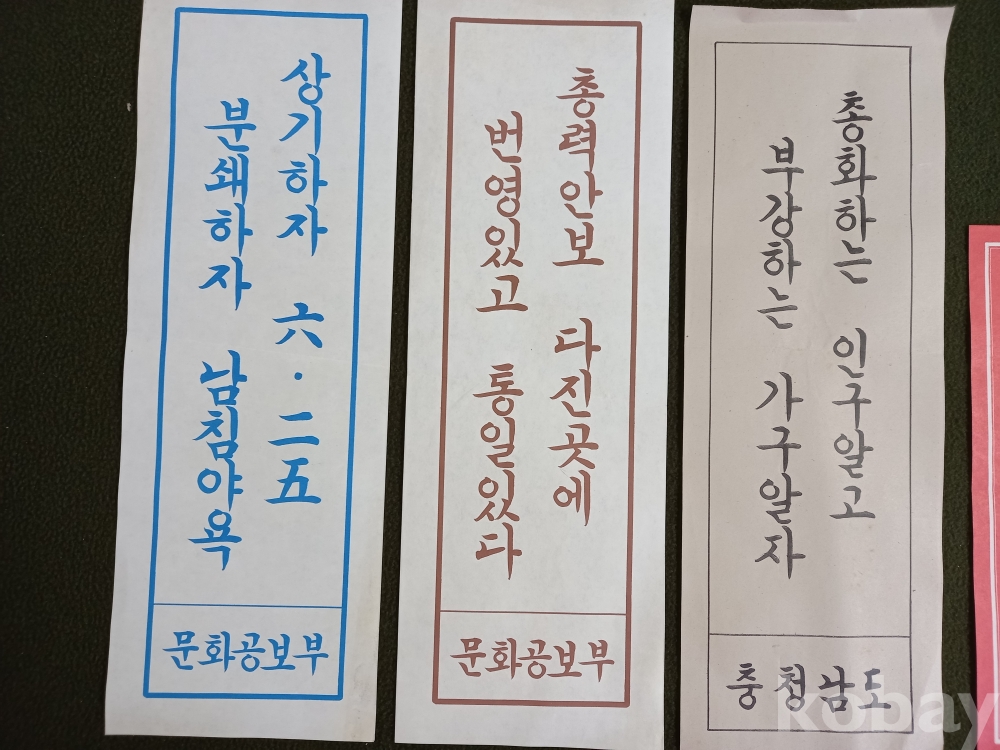 상기하자 六·二五
분쇄하자 남침야욕
문화공보부
총력안보 다진곳에
번영있고 통일있다
문화공보부
총화하는 인구알고
부강하는 가구알자
충청남도
kobay